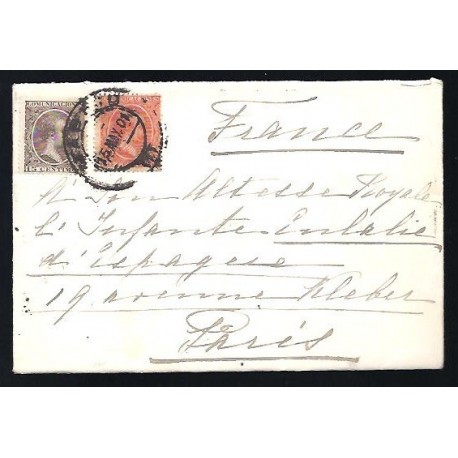 COMUNICACIONES
15 CENT
France
A Son Altesse Royale
l'Infante Eulalie
d'Espagne
19 avenue Kleber
Paris